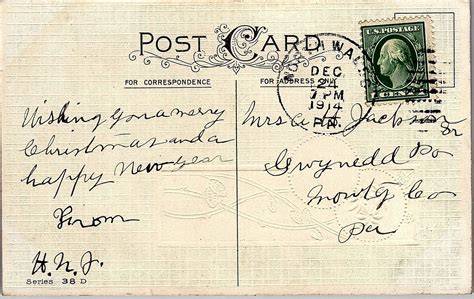 POST CARD
FOR CORRESPONDENCE
FOR ADDRESS ONLY
NORTH WAL
DEC
24
7 PM
1914
PA.
U.S. POSTAGE
1 CENT 1
Wishing you a merry
Christmas and a
happy New year
From
H. N. J.
Series 38 D
Mrs A Jackson
Gwynedd Po
Montg Co
Pa